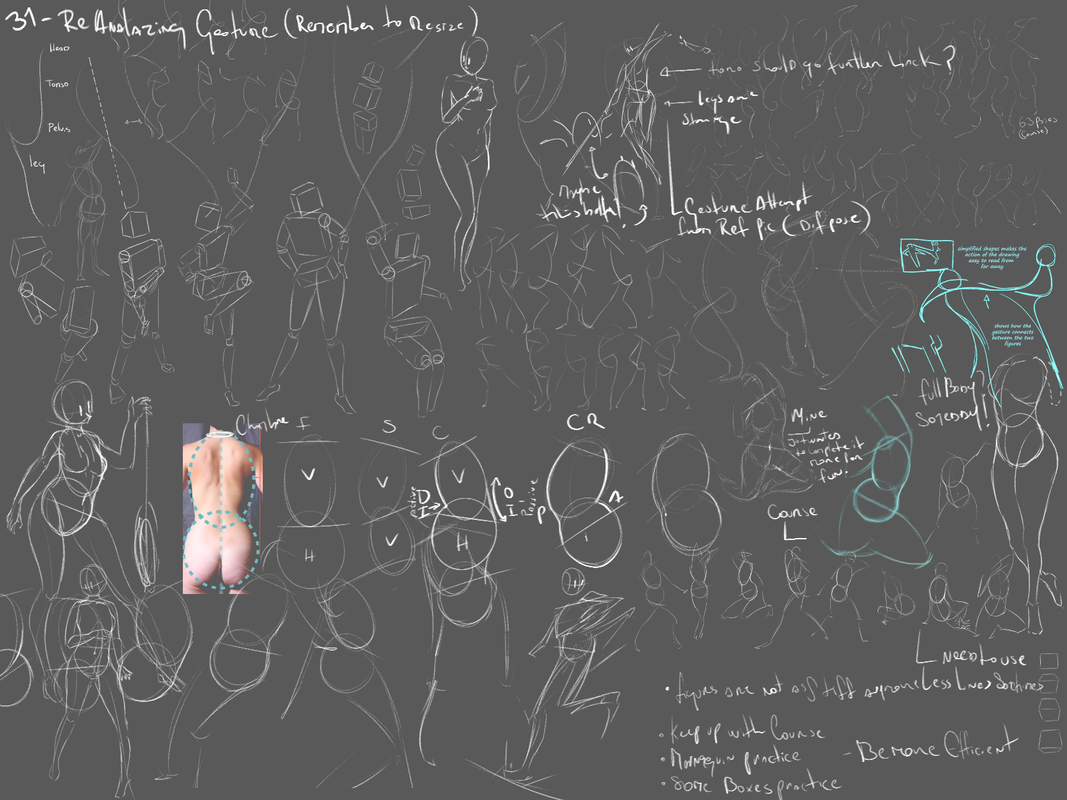 31 - ReAnalazing Gesture (Remember to Resize)
Head
Torso
Pelvis
leg
torso should go further back?
Legs are
strange
Maybe
this better
Gesture Attempt
from Ref pic (Dif pose)
63 poses
(Course)
simplified shapes makes the
action of the drawing
easy to read from
far away
shows how the
gesture connects
between the two
figures
full Body?
Somebody!
I
S
C
CR
V
V
V
V
H
H
D
I
active
D
I
passive
P
A
Mine
to complete it
more for
fun!
Course
Need to use
Less Lines Sometimes
• figures are not as stiff anymore
• Keep up with Course
• Mannequin practice
• Some Boxes practice
- Be more Efficient